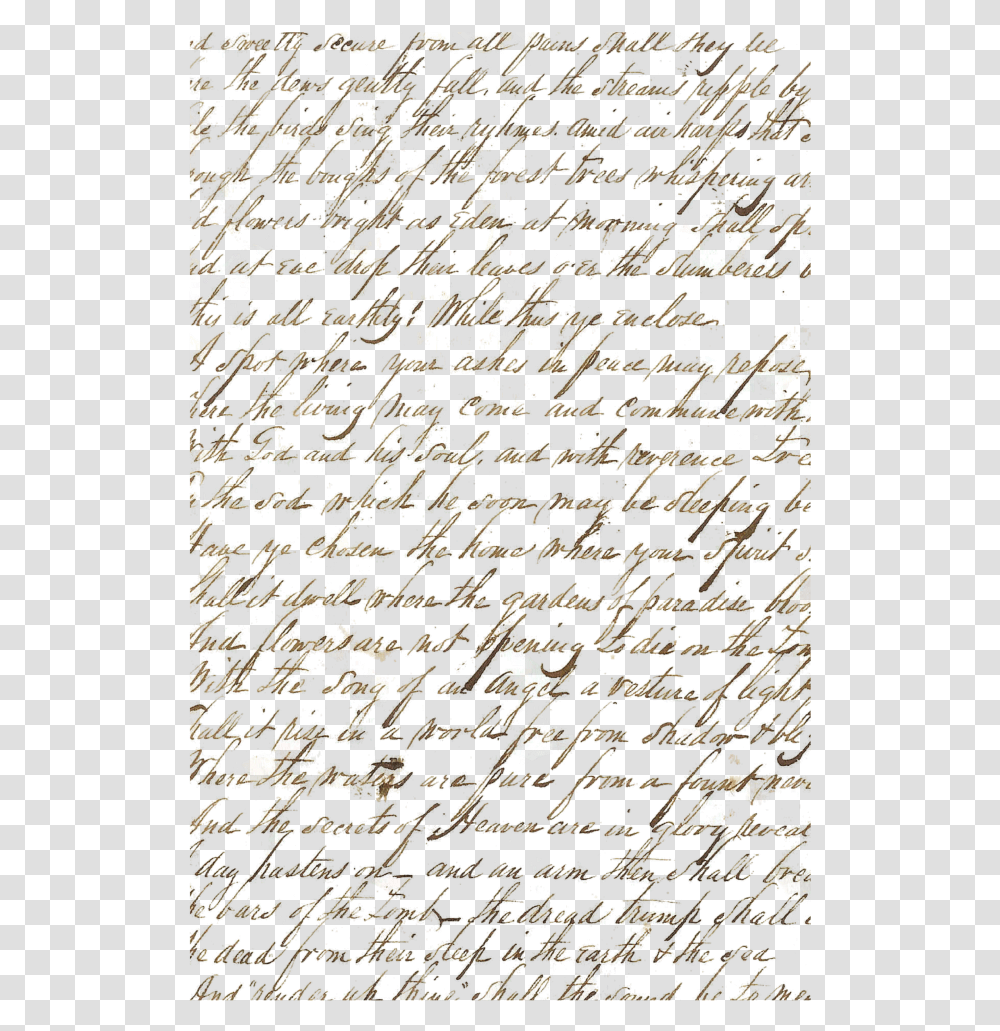 sweetly secure from all pains shall they lie
the dews gently fall, and the streams ripple by
the birds sing their ryhmes. Amid air harps that
rough the boughs of the forest trees whispering
flowers bright as Eden at morning shall
at Eve drop their leaves o'er the slumberers
this is all earthly! While thus ye enclose
A spot where your ashes in peace may repose
here the living may come and commune with
With God and his soul, and with reverence
the sod which he soon may be sleeping be
Have ye chosen the home where your spirit
Shall it dwell where the gardens of paradise bloo
And flowers are not opening to die on the tom
With the song of an Angel a vesture of light
Shall it rise in a world free from shadow & bli
Where the waters are pure from a fount nev
And the secrets of Heaven are in glory reveal
day hastens on – and an arm then shall brea
he bars of the Tomb – the dread trump shall
he dead from their sleep in the earth & the sea
And "render up thine" shall the sound be to me